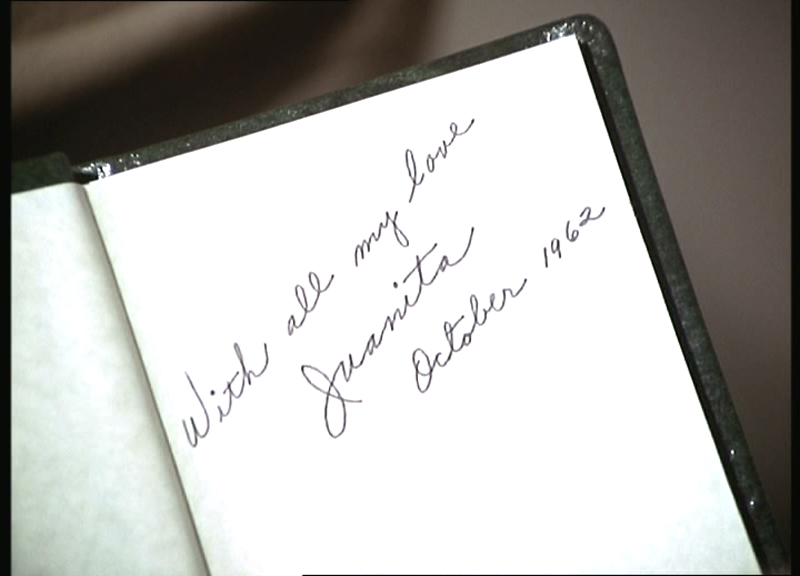 With all my love
Juanita
October 1962